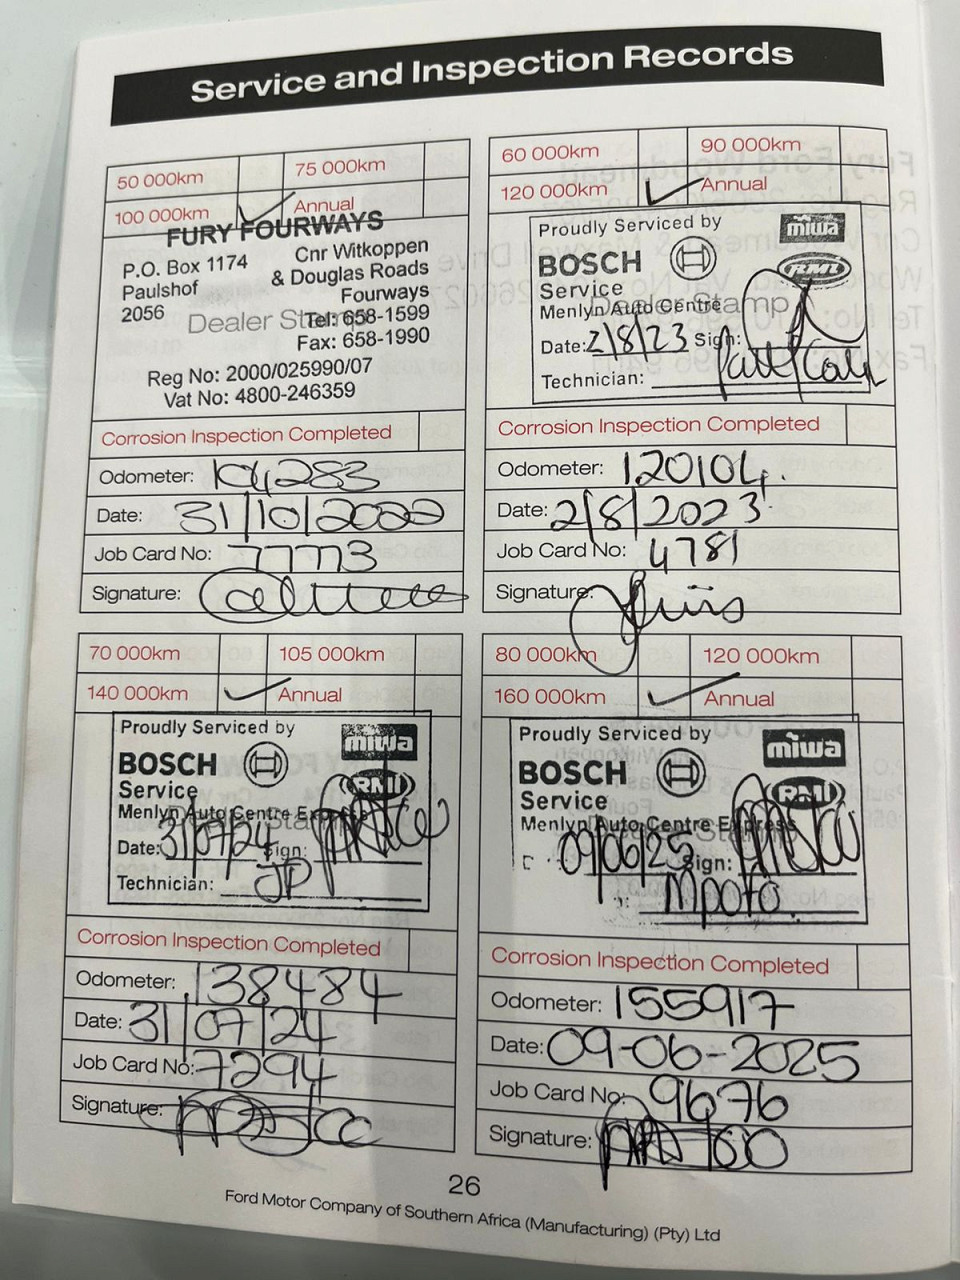 Service and Inspection Records
50 000km 75 000km
100 000km ✓ Annual
FURY FOURWAYS
P.O. Box 1174 Cnr Witkoppen
Paulshof & Douglas Roads
2056 Fourways
Dealer Stamp Tel: 658-1599
Fax: 658-1990
Reg No: 2000/025990/07
Vat No: 4800-246359
Corrosion Inspection Completed
Odometer: 104,283
Date: 31/10/2022
Job Card No: 77773
Signature:
60 000km 90 000km
120 000km ✓ Annual
Proudly Serviced by miwa
BOSCH
Service RMI
Menlyn Auto Centre
Dealer Stamp
Date: 2/8/23 Sign:
Technician:
Corrosion Inspection Completed
Odometer: 120104.
Date: 2/8/2023
Job Card No: 4781
Signature:
70 000km 105 000km
140 000km ✓ Annual
Proudly Serviced by miwa
BOSCH
Service RMI
Menlyn Auto Centre Express
Date: 31/07/24 Sign:
Technician: JP
Corrosion Inspection Completed
Odometer: 138484
Date: 31/07/24
Job Card No: 7294
Signature:
80 000km 120 000km
160 000km ✓ Annual
Proudly Serviced by miwa
BOSCH
Service RMI
Menlyn Auto Centre Express
09/06/25 Sign:
Mpofo.
Corrosion Inspection Completed
Odometer: 155917
Date: 09-06-2025
Job Card No: 9676
Signature:
26
Ford Motor Company of Southern Africa (Manufacturing) (Pty) Ltd